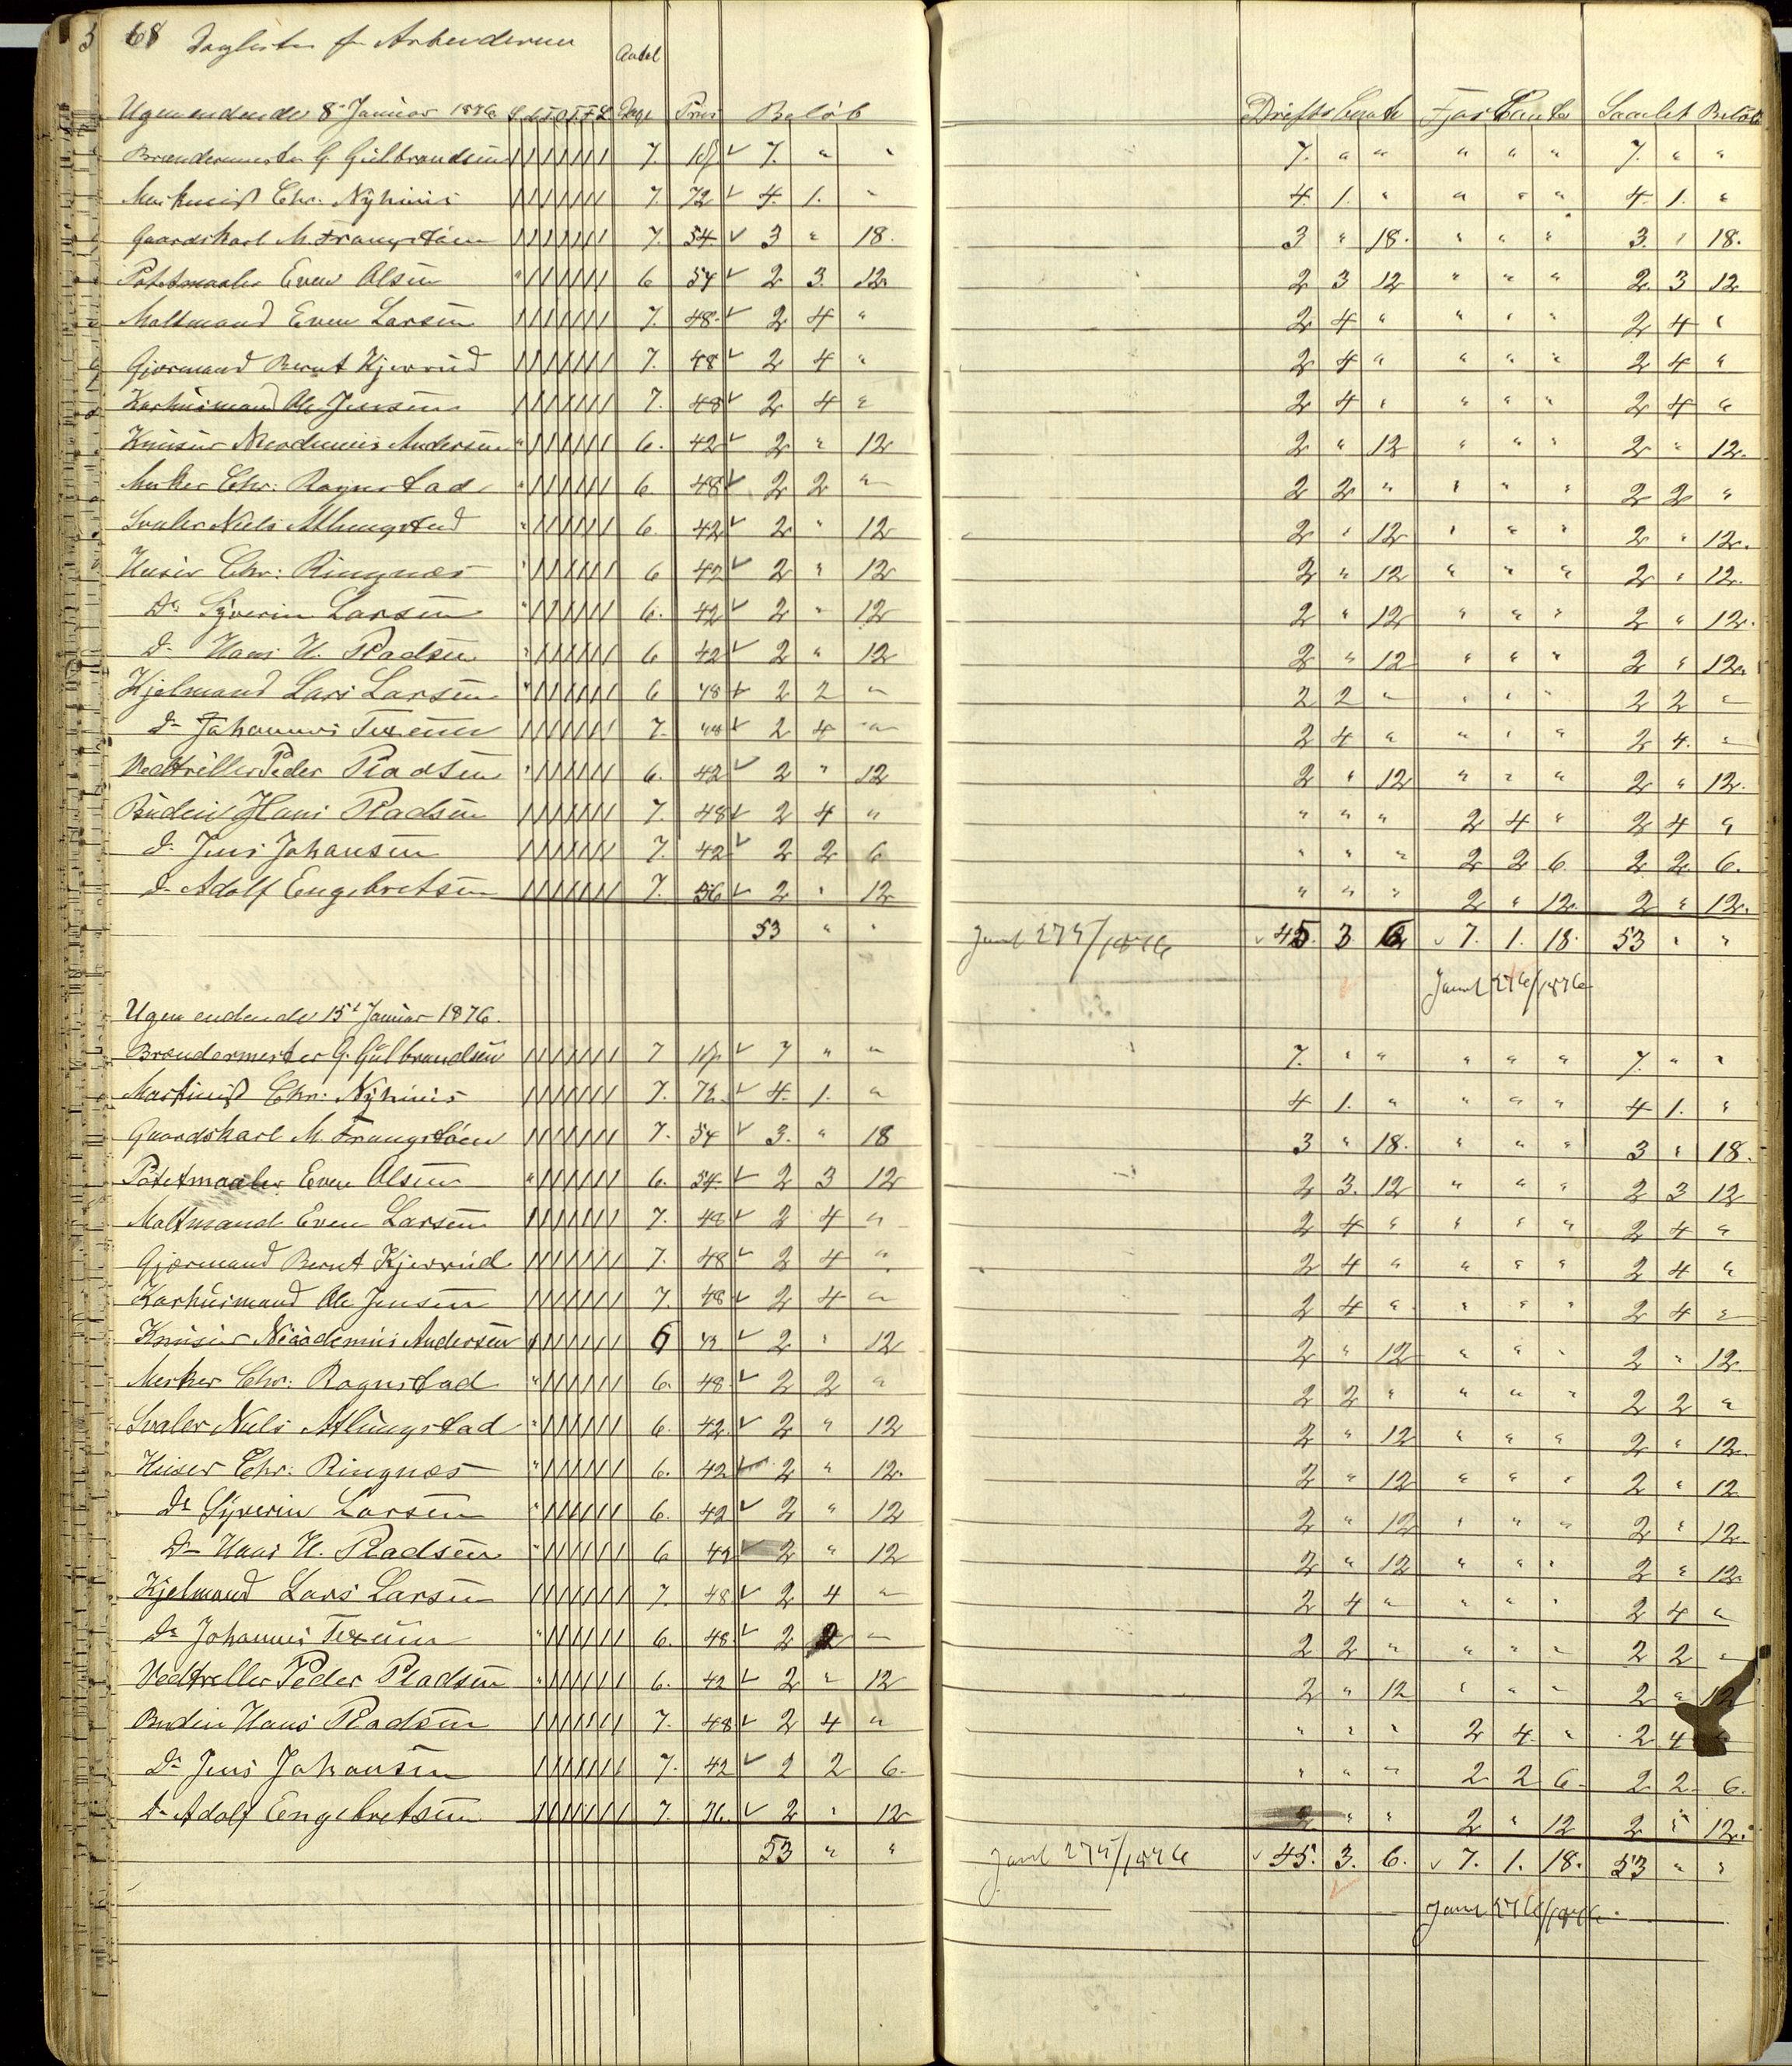 68 Daglister for Arbeiderne
Antal
Ugen endende 8de Januar 1876 S M T O T F L Dage Priis Beløb Drifts Conto Fjøs Conto Samlet Beløb
Brændermester G. Gulbrandsen 7. 1 7. " " 7. " " " " " 7. " "
Maskinist Chr. Nyhuus 7. 72 4. 1. " 4. 1. " " " " 4. 1. "
Gaardskarl M. 7. 54 3 " 18. 3 " 18. " " " 3. " 18.
Potetmaaler Even Olsen 6 54 2 3. 12 2 3 12 " " " 2. 3 12
Maltmand Even Larsen 7. 48. 2 4 " 2 4 " " " " 2 4 "
Gjærmand Bernt Kjerrud 7. 48 2 4 " 2 4 " " " " 2 4 "
Karhusmand Ole Jensen 7. 48 2 4 " 2 4 " " " " 2 4 "
Knuser Nicodemus Andersen " 6. 42 2 " 12 2 " 12 " " " 2 " 12.
Mæsker Chr: Rognstad " 6. 48 2 2 " 2 2 " " " " 2 2 "
Svaler Niels " 6. 42 2 " 12 2 " 12 " " " 2 " 12.
Huser Chr: Ringnæs " 6 42 2 " 12 2 " 12 " " " 2 " 12.
Do Syverin Larsen " 6. 42 2 " 12 2 " 12 " " " 2 " 12.
Do Hans H. Pladsen " 6 42 2 " 12 2 " 12 " " " 2 " 12.
Kjelmand Lars Larsen " 6 48 2 2 " 2 2 " " " " 2 2 "
Do Johannes 7. 48 2 4 " 2 4 " " " " 2 4. "
Vedtriller Peder Pladsen " 6. 42 2 " 12 2 " 12 " " " 2 " 12.
Budeie Hans Pladsen 7. 48 2 4 " " " " 2 4 " 2 4 "
Do Jens Johansen 7. 42 2 2 6 " " " 2 2 6 2 2 6.
Do Adolf Engebretsen 7. 36 2 " 12 " " " 2 " 12. 2 " 12.
53 " " Journal 275/1876 45. 3 6 7. 1. 18. 53 " "
Journal 276/1876
Ugen endende 15de Januar 1876.
Brændermester G. Gulbrandsen 7 1 7 " " 7. " " " " " 7. " "
Maskinist Chr: Nyhuus 7. 72. 4. 1. " 4 1. " " " " 4 1. "
Gaardskarl M. 7. 54 3. " 18 3 " 18. " " " 3 " 18.
Potetmaaler Even Olsen " 6. 54. 2 3 12 2 3. 12 " " " 2 3 12
Maltmand Even Larsen 7. 48 2 4 " 2 4 " " " " 2 4 "
Gjærmand Bernt Kjerrud 7. 48 2 4 " 2 4 " " " " 2 4 "
Karhusmand Ole Jensen 7. 48 2 4 " 2 4 " " " " 2 4 "
Knuser Nicodemus Andersen 6 42. 2 " 12 2 " 12 " " " 2 " 12.
Mæsker Chr: Rognstad " 6. 48 2 2 " 2 2 " " " " 2 2 "
Svaler Niels " 6. 42. 2 " 12 2 " 12 " " " 2 " 12.
Huser Chr: Ringnæs " 6. 42 2 " 12. 2 " 12 " " " 2 " 12
Do Syverin Larsen " 6. 42 2 " 12 2 " 12 " " " 2 " 12.
Do Hans H. Pladsen " 6 42 2 " 12 2 " 12 " " " 2 " 12.
Kjelmand Lars Larsen 7. 48 2 4 " 2 4 " " " " 2 4 "
Do Johannes " 6. 48 2 2 " 2 2 " " " " 2 2 "
Vedtreller Peder Pladsen " 6. 42 2 " 12 2 " 12 " " " 2 " 12
Budeie Hans Pladsen 7. 48 2 4 " " " " 2 4 " 2 4
Do Jens Johansen 7. 42 2 2 6. " " " 2 2 6. 2 2. 6.
Do Adolf Engebretsen 7. 36. 2 " 12 " " 2 " 12 2 " 12.
53 " " Journal 275/1876 45. 3. 6. 7. 1. 18. 53 " "
Journal 276/1876.